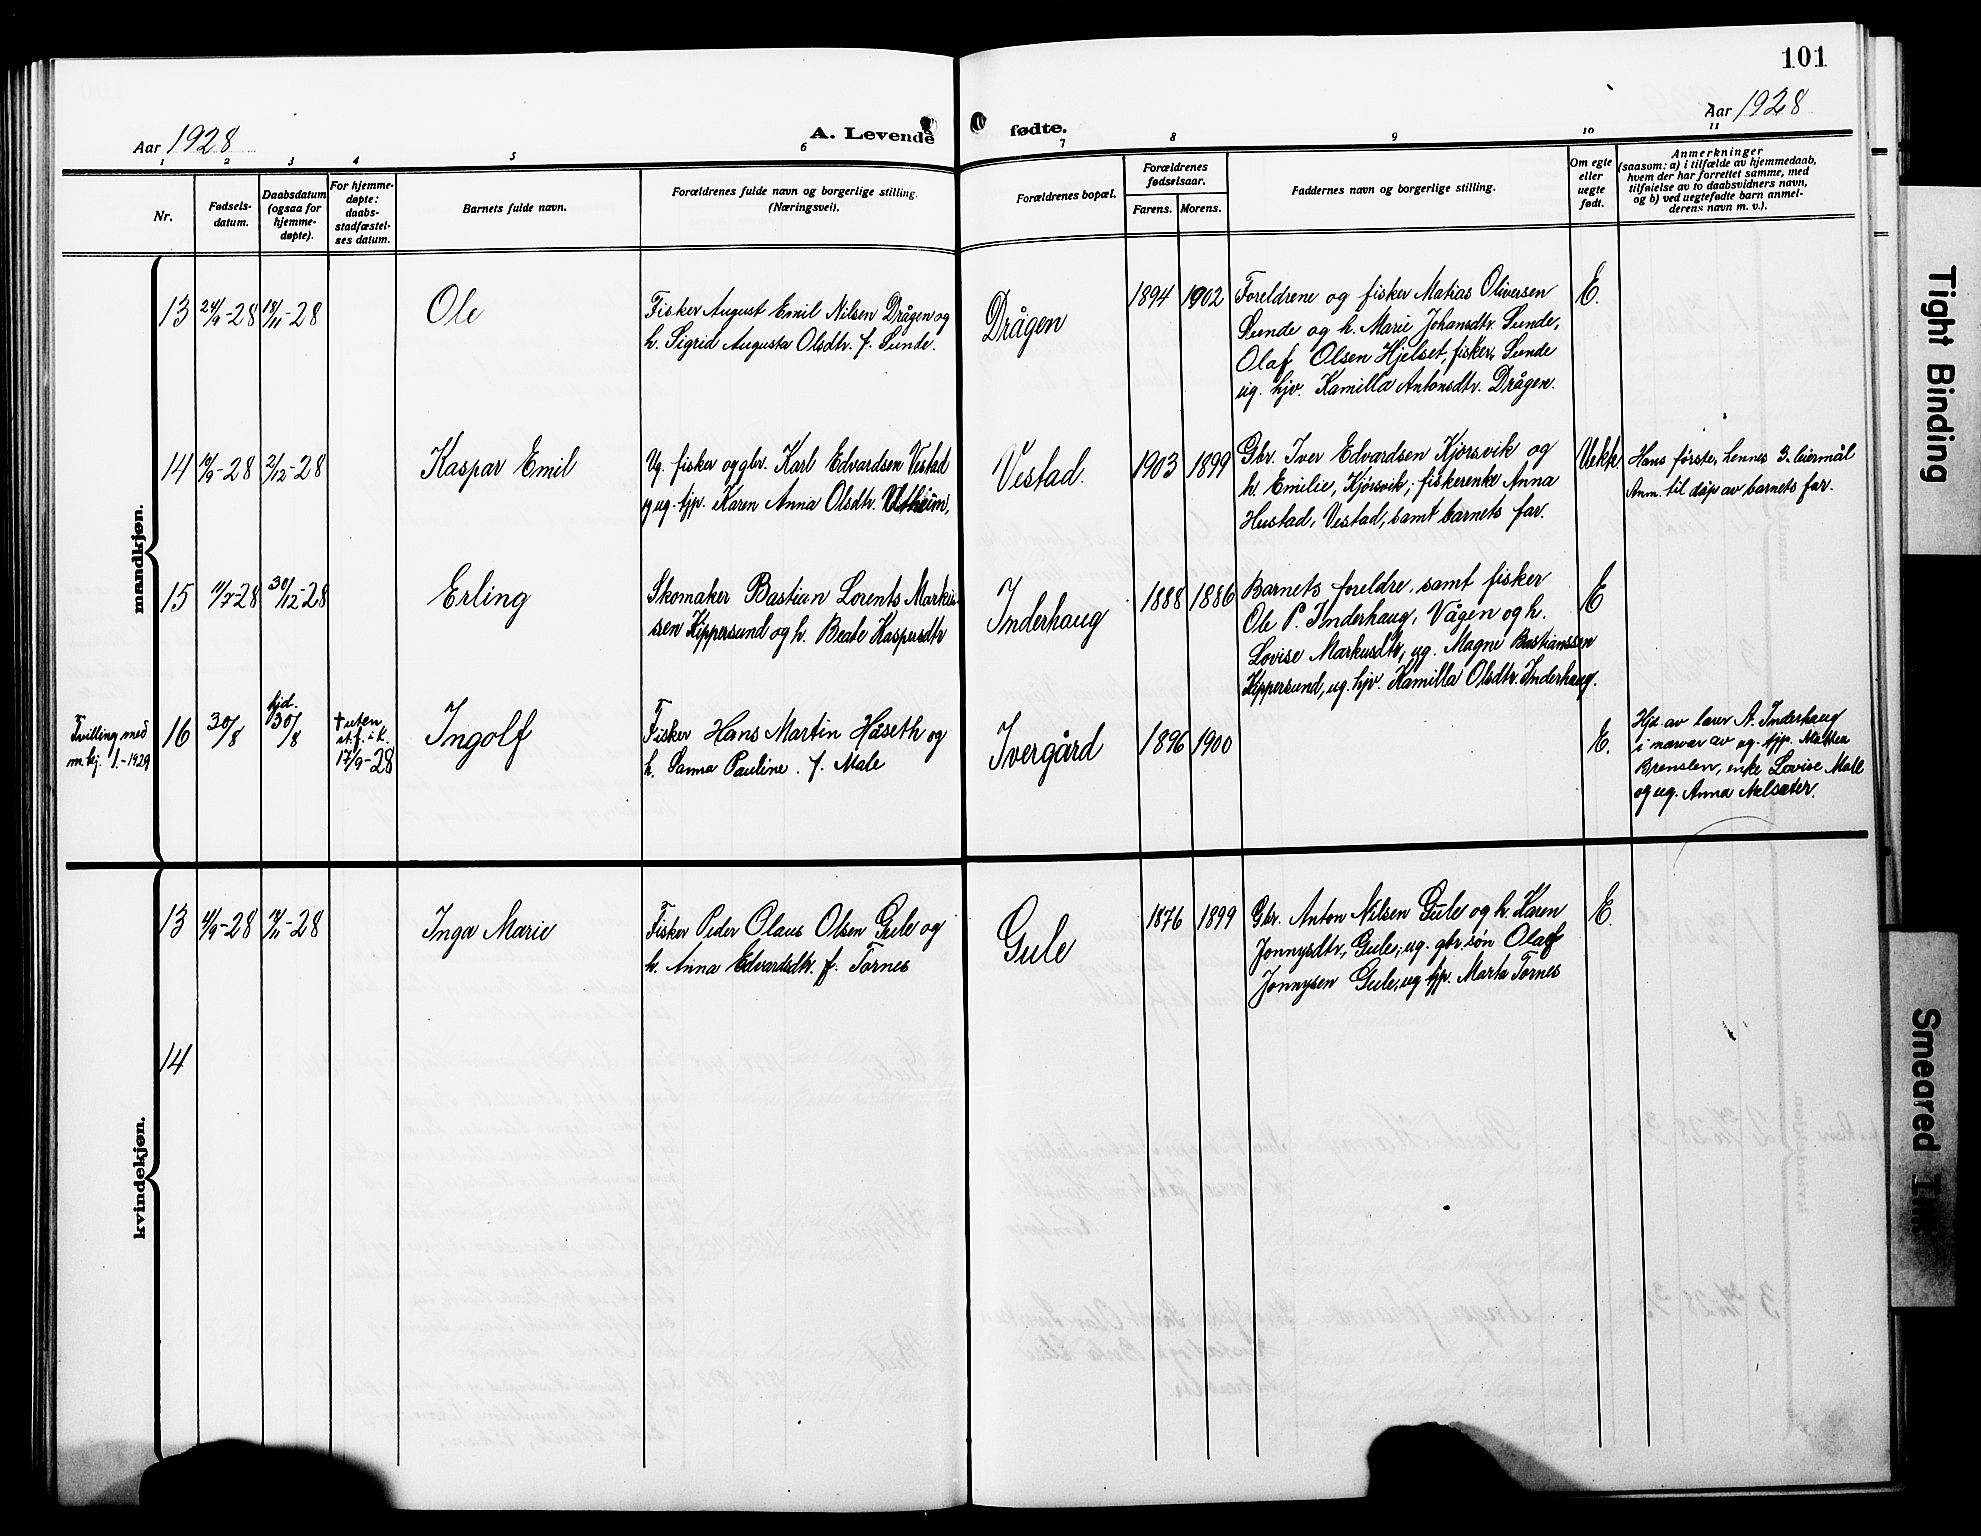 101
Aar 1928
A. Levende fødte.
Aar 1928
1 2 3 4 5 6 7 8 9 10 11
Nr.
Fødsels-
datum.
Daabsdatum
(ogsaa for
hjemme-
døpte).
For hjemme-
døpte:
daabs-
stadfæstel-
ses datum.
Barnets fulde navn.
Forældrenes fulde navn og borgerlige stilling.
(Næringsvei).
Forældrenes bopæl.
Forældrenes
fødselsaar.
Farens. Morens.
Faddernes navn og borgerlige stilling.
Om egte
eller
uegte
født.
Anmerkninger
(saasom: a) i tilfælde av hjemmedaab,
hvem der har forrettet samme, med
tilføielse av to daabsvidners navn,
og b) ved uegtefødte barn anmel-
derens navn m. v.).
mandkjøn.
13 24/9-28 18/11-28
Ole
Fisker August Emil Nilsen Drågen og
h. Sigrid Augusta Olsdtr. f. Sunde.
Drågen
1894 1902
Foreldrene og fisker Matias Oliversen
Sunde og h. Marie Johansdtr. Sunde,
Olaf Olsen Hjelset, fisker, Sunde
ug. hjv. Kamilla Antonsdtr. Drågen.
E.
14 19/9-28 2/12-28
Kaspar Emil
Ug. fisker og gbr. Karl Edvardsen Vestad
og ug. tjp. Karen Anna Olsdtr. Utheim,
Vestad.
1903 1899
Gbr. Iver Edvardsen Kjørsvik og
h. Emilie, Kjørsvik; fiskerenke Anna
Hustad, Vestad, samt barnets far.
Uekte
Hans første, hennes 3. leiermål
Anm. til dåp av barnets far.
15 11/7-28 30/12-28
Erling
Skomaker Bastian Lorents Markus-
sen Kippersund og h. Beate Kaspersdtr
Inderhaug
1888 1886
Barnets foreldre, samt fisker
Ole P. Inderhaug, Vågen og h.
Lovise Markusdtr, ug. Magne Bastianssen
Kippersund, ug. hjv. Kamilla Olsdtr. Inderhaug.
E
Tvilling med
m.kj. 1.-1929
16 30/8
hjd.
30/8
† uten
st.f. i k.
17/9-28
Ingolf
Fisker Hans Martin Håseth og
h. Sanna Pauline. f. Male
Ivergård
1896 1900
E.
Hjd av lærer A. Inderhaug
i nærvær av ug. tjp. Mathea
Brenslen, enke Lovise Male
og ug. Anna Melsæter.
kvindekjøn.
13 4/9-28 18/11-28
Inga Marie
Fisker Peder Olaus Olsen Gule og
h. Anna Edvardsdtr. f. Tornes
Gule
1876 1899
Gbr. Anton Nilsen Gule og h. Karen
Jonnysdtr, Gule, ug. gbr. søn Olaf
Jonnysen Gule, ug tjp. Marta Tornes
E.
14
Tight Binding
Smeared Ink